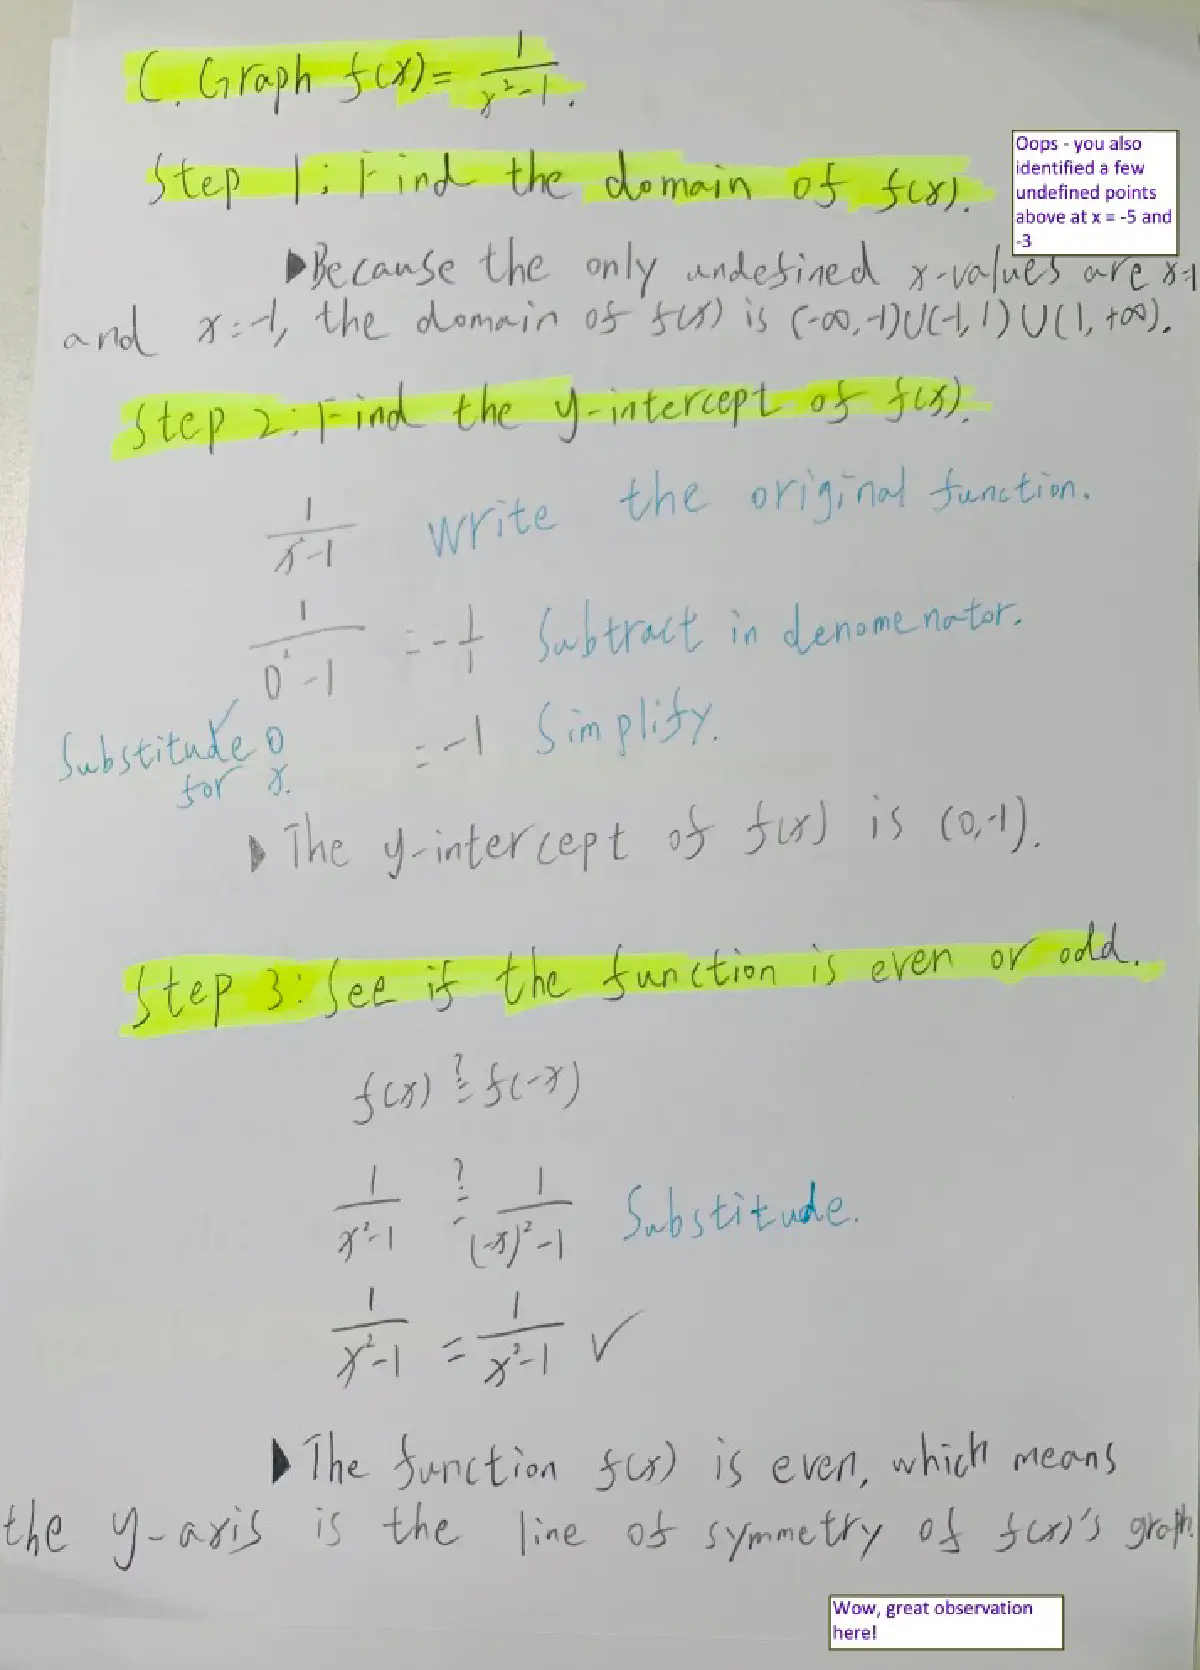 C. Graph f(x) = 1/(x²-1).
Step 1: Find the domain of f(x).
Oops - you also
identified a few
undefined points
above at x = -5 and
-3
▶Because the only undefined x-values are x=1
and x=-1, the domain of f(x) is (-∞,-1)U(-1,1)U(1,+∞).
Step 2: Find the y-intercept of f(x).
1/(x²-1) Write the original function.
1/(0²-1) = -1/1 Subtract in denomenator.
Substitude 0 = -1 Simplify.
for x.
▶The y-intercept of f(x) is (0,-1).
Step 3: See if the function is even or odd.
f(x) ≟ f(-x)
1/(x²-1) ≟ 1/((-x)²-1) Substitude.
1/(x²-1) = 1/(x²-1) ✓
▶The function f(x) is even, which means
the y-axis is the line of symmetry of f(x)'s graph.
Wow, great observation
here!